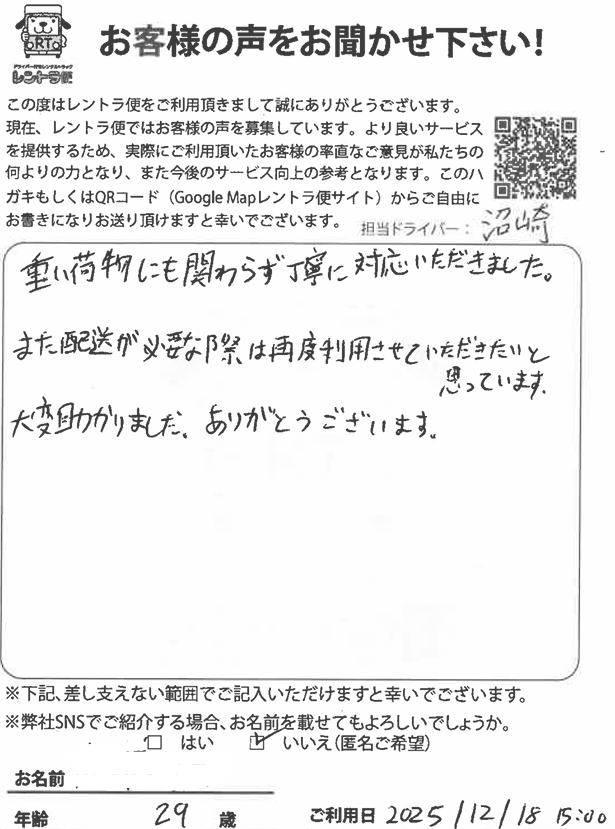 お客様の声をお聞かせ下さい!
ORTO
ドライバー付きレンタルトラック
レントラ便
この度はレントラ便をご利用頂きまして誠にありがとうございます。
現在、レントラ便ではお客様の声を募集しています。より良いサービス
を提供するため、実際にご利用頂いたお客様の率直なご意見が私たちの
何よりの力となり、また今後のサービス向上の参考となります。このハ
ガキもしくはQRコード（Google Mapレントラ便サイト）からご自由に
お書きになりお送り頂けますと幸いでございます。
担当ドライバー：沼崎
重い荷物にも関わらず丁寧に対応いただきました。
また配送が必要な際は再度利用させていただきたいと
思っています。
大変助かりました。ありがとうございます。
※下記、差し支えない範囲でご記入いただけますと幸いでございます。
※弊社SNSでご紹介する場合、お名前を載せてもよろしいでしょうか。
□ はい ☑ いいえ（匿名ご希望）
お名前
年齢 29 歳 ご利用日 2025/12/18 15:00